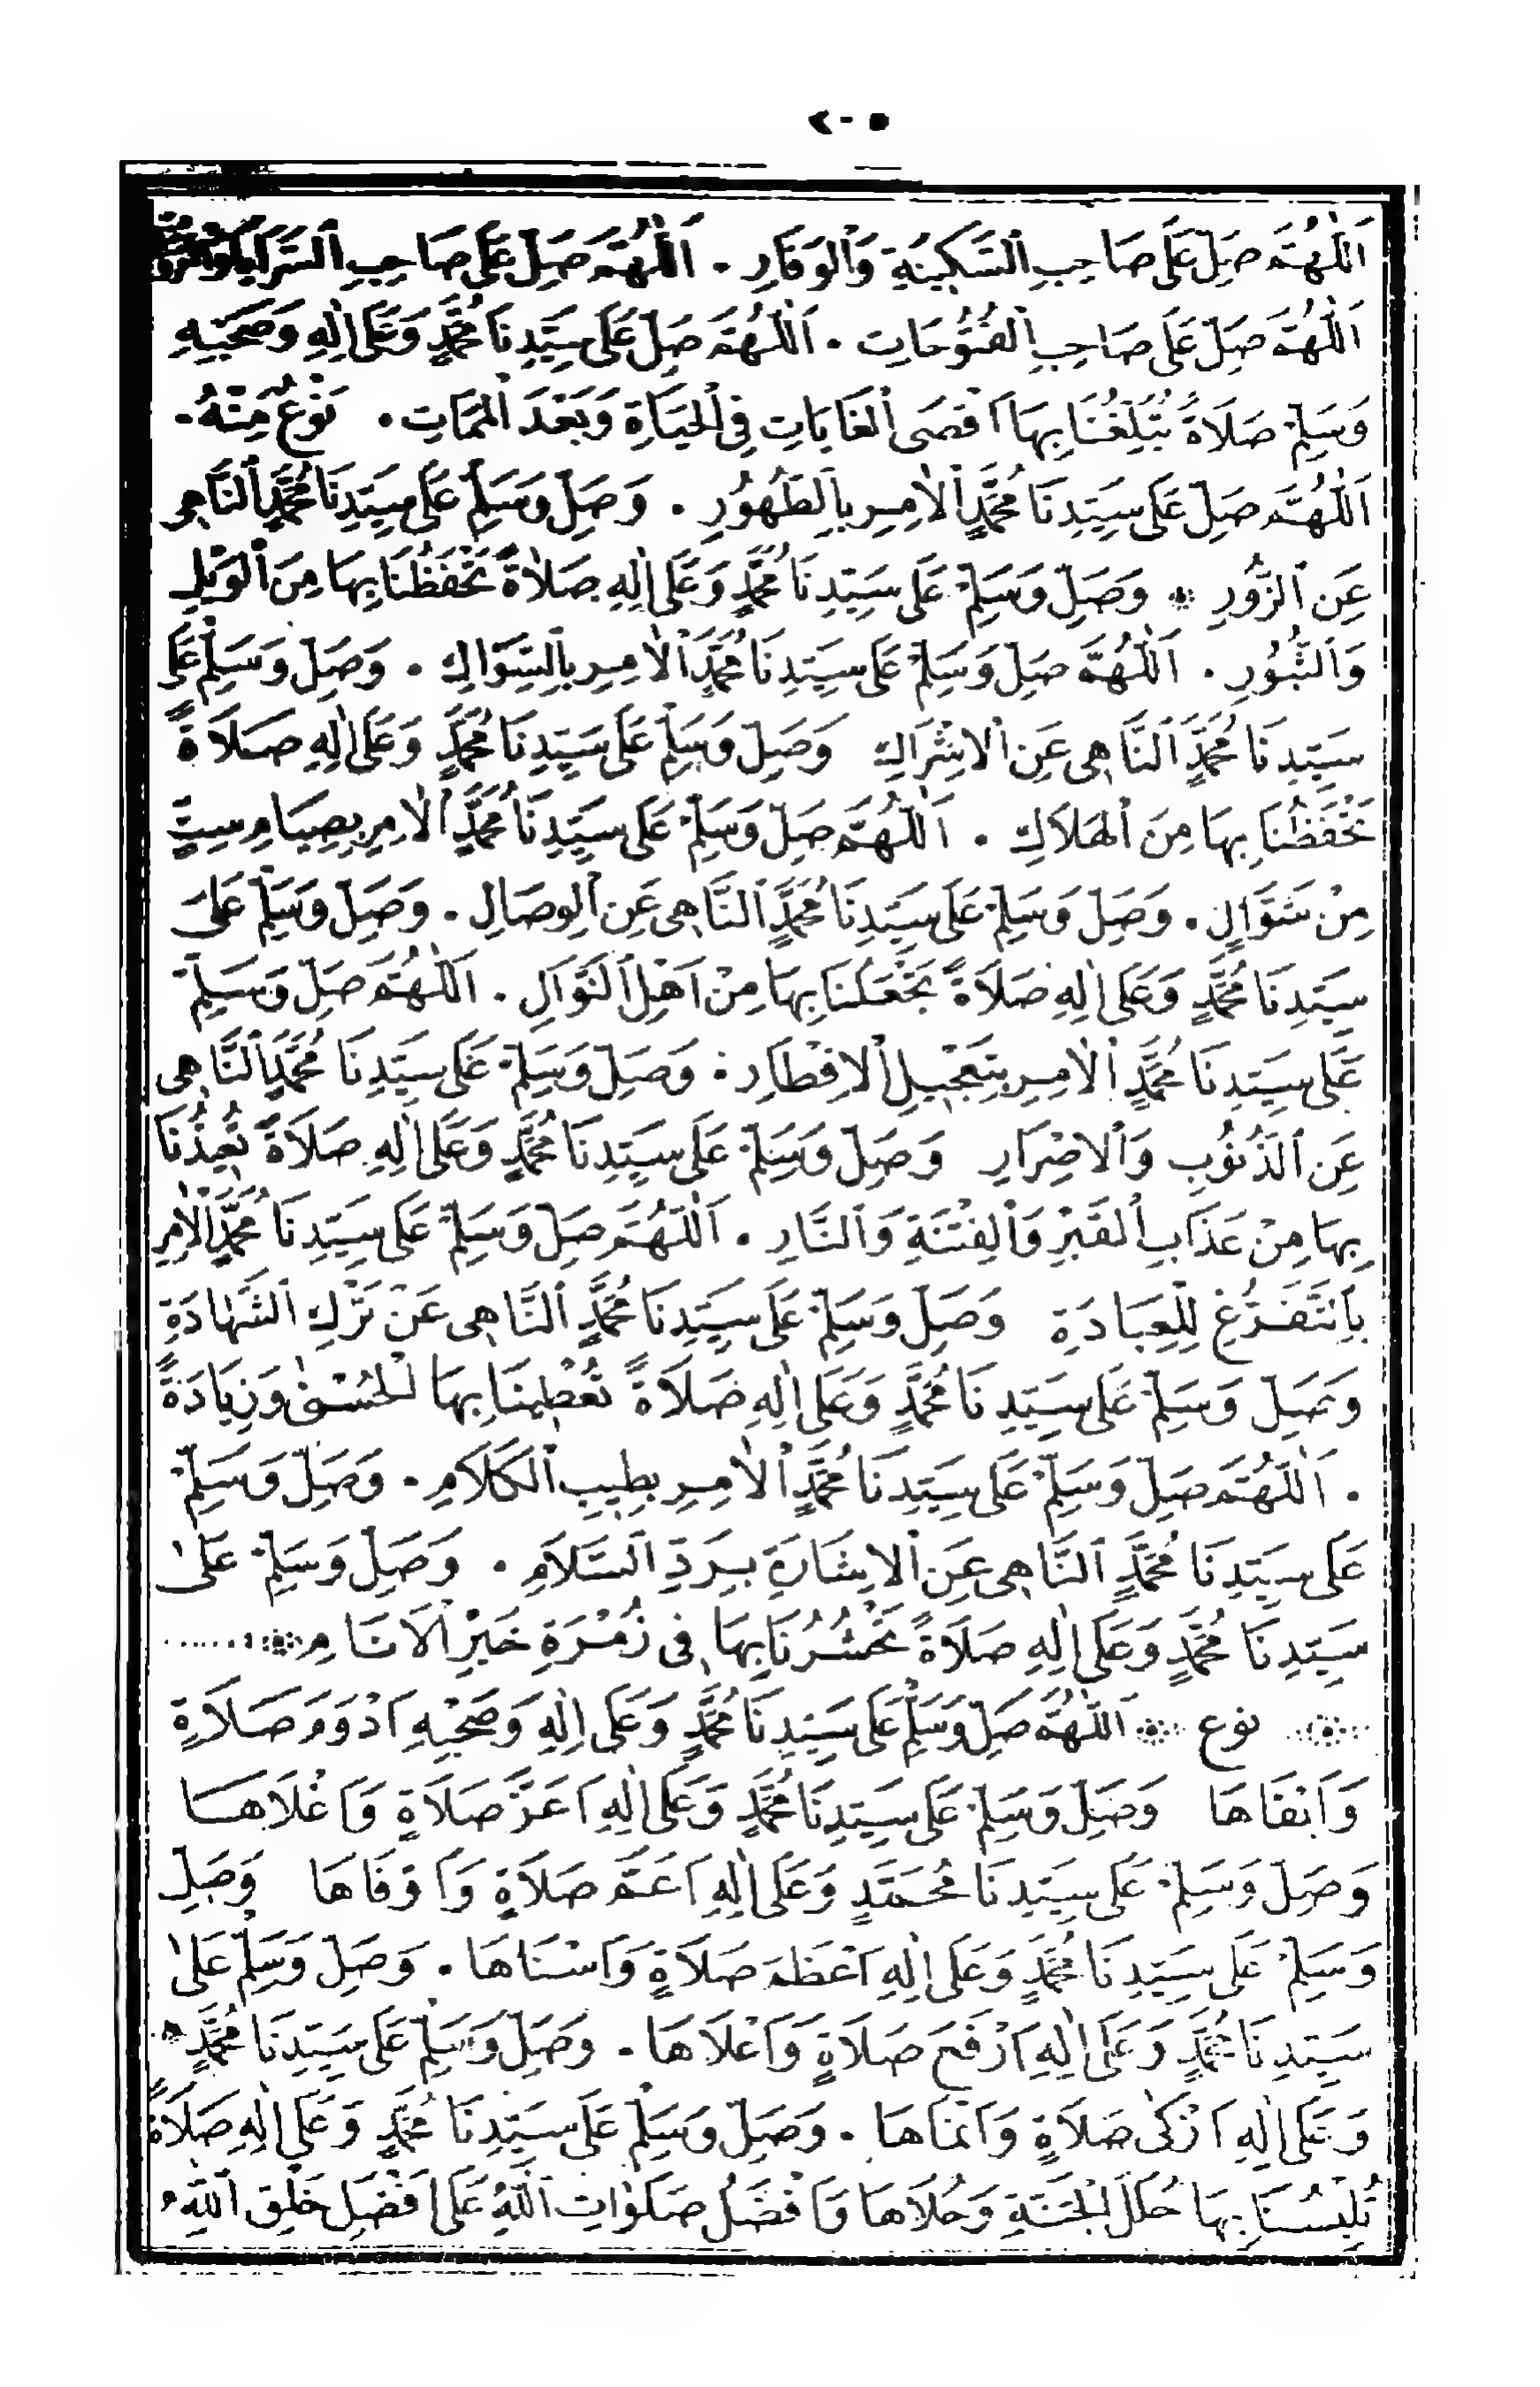 ٢٠٥
اَللّٰهُمَّ صَلِّ عَلَى صَاحِبِ السَّكِينَةِ وَالْوَقَارِ . اَللّٰهُمَّ صَلِّ عَلَى صَاحِبِ السَّرَايَا
اَللّٰهُمَّ صَلِّ عَلَى صَاحِبِ الْفُتُوُحَاتِ . اَللّٰهُمَّ صَلِّ عَلَى سَيِّدِنَا مُحَمَّدٍ وَعَلَى اٰلِهِ وَصَحْبِهِ
وَسَلِّمْ صَلَاةً تُبَلِّغُنَا بِهَا اَقْصَى الْغَايَاتِ فِى الْحَيَاةِ وَبَعْدَ الْمَمَاتِ . نَوْعٌ مِنْهُ .
اَللّٰهُمَّ صَلِّ عَلَى سَيِّدِنَا مُحَمَّدٍ الْاٰمِرِ بِالطَّهُوُرِ . وَصَلِّ وَسَلِّمْ عَلَى سَيِّدِنَا مُحَمَّدٍ النَّاهِى
عَنِ الزُّوُرِ * وَصَلِّ وَسَلِّمْ عَلَى سَيِّدِنَا مُحَمَّدٍ وَعَلَى اٰلِهِ صَلَاةً تَحْفَظُنَا بِهَا مِنَ الْوَيْلِ
وَالثُّبُوُرِ . اَللّٰهُمَّ صَلِّ وَسَلِّمْ عَلَى سَيِّدِنَا مُحَمَّدٍ الْاٰمِرِ بِالسِّوَاكِ . وَصَلِّ وَسَلِّمْ عَلَى
سَيِّدِنَا مُحَمَّدٍ النَّاهِى عَنِ الْاِشْرَاكِ وَصَلِّ وَسَلِّمْ عَلَى سَيِّدِنَا مُحَمَّدٍ وَعَلَى اٰلِهِ صَلَاةً
تَحْفَظُنَا بِهَا مِنَ الْهَلَاكِ . اَللّٰهُمَّ صَلِّ وَسَلِّمْ عَلَى سَيِّدِنَا مُحَمَّدٍ الْاٰمِرِ بِصِيَامِ سِتٍّ
مِنْ شَوَّالٍ . وَصَلِّ وَسَلِّمْ عَلَى سَيِّدِنَا مُحَمَّدٍ النَّاهِى عَنِ الْوِصَالِ . وَصَلِّ وَسَلِّمْ عَلَى
سَيِّدِنَا مُحَمَّدٍ وَعَلَى اٰلِهِ صَلَاةً تَجْعَلُنَا بِهَا مِنْ اَهْلِ النَّوَالِ . اَللّٰهُمَّ صَلِّ وَسَلِّمْ
عَلَى سَيِّدِنَا مُحَمَّدٍ الْاٰمِرِ بِتَعْجِيلِ الْاِفْطَارِ . وَصَلِّ وَسَلِّمْ عَلَى سَيِّدِنَا مُحَمَّدٍ النَّاهِى
عَنِ الذُّنُوُبِ وَالْاِصْرَارِ وَصَلِّ وَسَلِّمْ عَلَى سَيِّدِنَا مُحَمَّدٍ وَعَلَى اٰلِهِ صَلَاةً تُعِيذُنَا
بِهَا مِنْ عَذَابِ الْقَبْرِ وَالْفِتْنَةِ وَالنَّارِ . اَللّٰهُمَّ صَلِّ وَسَلِّمْ عَلَى سَيِّدِنَا مُحَمَّدٍ الْاٰمِرِ
بِالتَّفَرُّغِ لِلْعِبَادَةِ وَصَلِّ وَسَلِّمْ عَلَى سَيِّدِنَا مُحَمَّدٍ النَّاهِى عَنْ تَرْكِ الشَّهَادَةِ
وَصَلِّ وَسَلِّمْ عَلَى سَيِّدِنَا مُحَمَّدٍ وَعَلَى اٰلِهِ صَلَاةً تُعْطِينَا بِهَا الْحُسْنٰى وَزِيَادَةً
. اَللّٰهُمَّ صَلِّ وَسَلِّمْ عَلَى سَيِّدِنَا مُحَمَّدٍ الْاٰمِرِ بِطِيبِ الْكَلَامِ . وَصَلِّ وَسَلِّمْ
عَلَى سَيِّدِنَا مُحَمَّدٍ النَّاهِى عَنِ الْاِشَارَةِ بِرَدِّ السَّلَامِ . وَصَلِّ وَسَلِّمْ عَلٰى
سَيِّدِنَا مُحَمَّدٍ وَعَلَى اٰلِهِ صَلَاةً تَحْشُرُنَا بِهَا فِى زُمْرَةِ خَيْرِ الْاَنَامِ
نوع اَللّٰهُمَّ صَلِّ وَسَلِّمْ عَلَى سَيِّدِنَا مُحَمَّدٍ وَعَلَى اٰلِهِ وَصَحْبِهِ اَدْوَمَ صَلَاةٍ
وَاَبْقَاهَا وَصَلِّ وَسَلِّمْ عَلَى سَيِّدِنَا مُحَمَّدٍ وَعَلَى اٰلِهِ اَعَزَّ صَلَاةٍ وَاَغْلَاهَا
وَصَلِّ وَسَلِّمْ عَلَى سَيِّدِنَا مُحَمَّدٍ وَعَلَى اٰلِهِ اَعَمَّ صَلَاةٍ وَاَوْفَاهَا وَصَلِّ
وَسَلِّمْ عَلَى سَيِّدِنَا مُحَمَّدٍ وَعَلَى اٰلِهِ اَعْظَمَ صَلَاةٍ وَاَسْنَاهَا . وَصَلِّ وَسَلِّمْ عَلٰى
سَيِّدِنَا مُحَمَّدٍ وَعَلَى اٰلِهِ اَرْفَعَ صَلَاةٍ وَاَعْلَاهَا . وَصَلِّ وَسَلِّمْ عَلَى سَيِّدِنَا مُحَمَّدٍ
وَعَلَى اٰلِهِ اَزْكٰى صَلَاةٍ وَاَنْمَاهَا . وَصَلِّ وَسَلِّمْ عَلَى سَيِّدِنَا مُحَمَّدٍ وَعَلَى اٰلِهِ صَلَاةً
تُلْبِسُنَا بِهَا حُلَلَ الْجَنَّةِ وَحُلَاهَا وَاَفْضَلُ صَلَوٰاتِ اللّٰهِ عَلَى اَفْضَلِ خَلْقِ اللّٰهِ